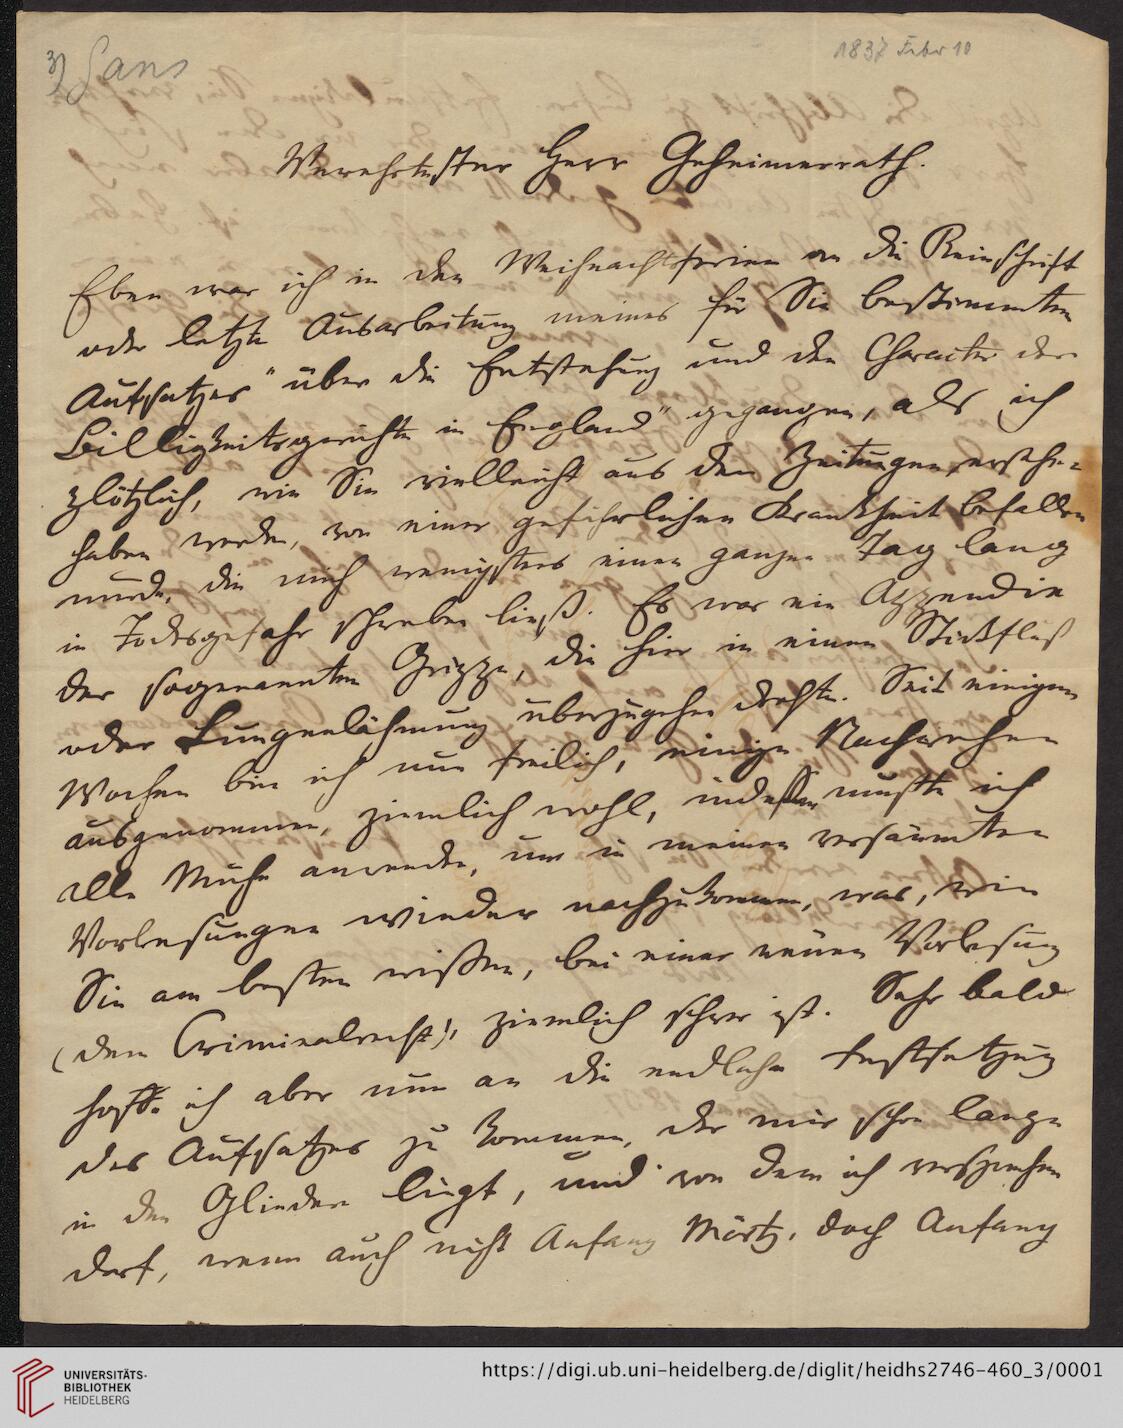 3) Gans
1837 Febr 10
Verehrtester Herr Geheimerrath.
Eben war ich in den Weihnachtsferien an die Reinschrift
oder letzte Ausarbeitung meines für Sie bestimmten
Aufsatzes "über die Entstehung und den Character der
Billigkeitsgerichte in England" gegangen, als ich
plötzlich, wie Sie vielleicht aus den Zeitungen ersehen
haben werden, von einer gefährlichen Krankheit befallen
wurde, die mich wenigstens einen ganzen Tag lang
in Todesgefahr schweben ließ. Es war ein Appendix
der sogenannten Grippe, die hier in einen Stickfluß
oder Lungenlähmung überzugehen drohte. Seit einigen
Wochen bin ich nun freilich, einige Nachwehen
ausgenommen, ziemlich wohl, indessen mußte ich
alle Mühe anwenden, um in meinen versäumten
Vorlesungen wieder nachzukommen, was, wie
Sie am besten wißen, bei einer neuen Vorlesung
(dem Criminalrecht), ziemlich schwer ist. Sehr bald
hoffe ich aber nun an die endliche Festsetzung
des Aufsatzes zu kommen, der mir schon lange
in den Gliedern liegt, und von dem ich versprechen
darf, wenn auch nicht Anfang März, doch Anfang
UNIVERSITÄTS-
BIBLIOTHEK
HEIDELBERG
https://digi.ub.uni-heidelberg.de/diglit/heidhs2746-460_3/0001